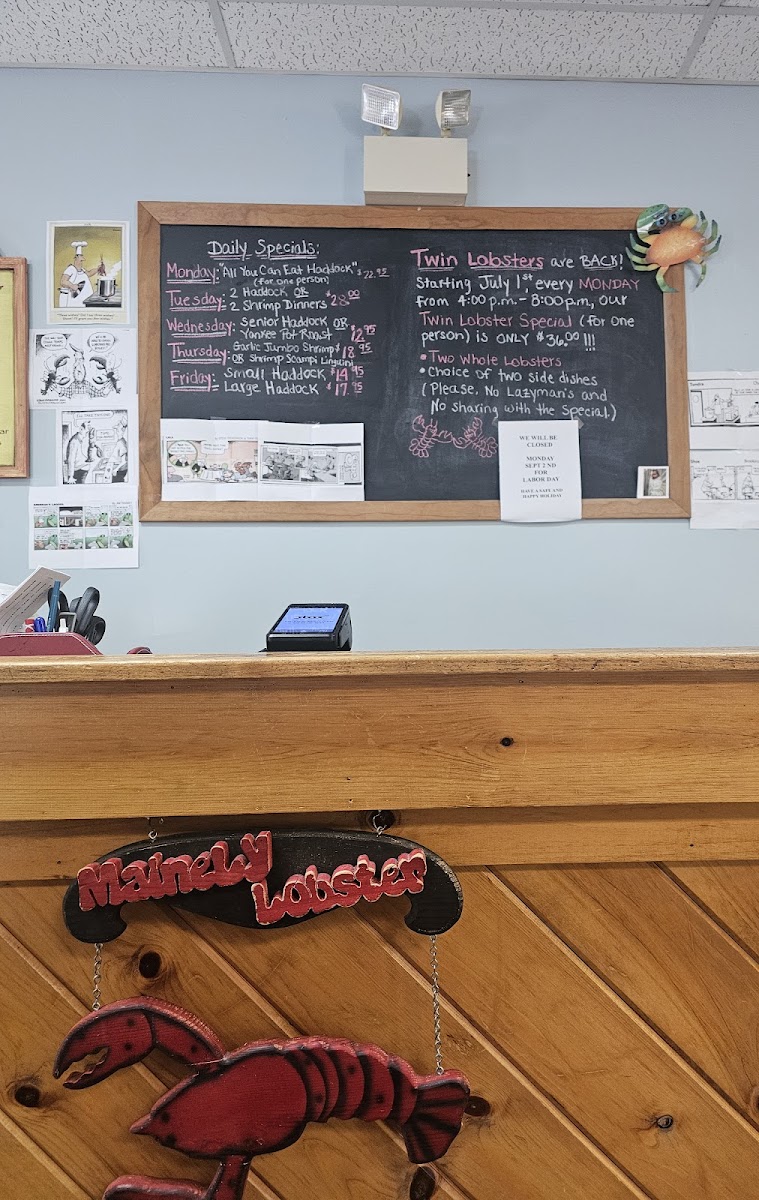 Daily Specials:
Monday: "All You Can Eat Haddock" $22.95
(for one person)
Tuesday: 2 Haddock OR
2 Shrimp Dinners $28.00
Wednesday: Senior Haddock OR
Yankee Pot Roast $12.95
Thursday: Garlic Jumbo Shrimp $18.95
OR Shrimp Scampi Linguini
Friday: Small Haddock $14.95
Large Haddock $17.95
Twin Lobsters are BACK!
Starting July 1st, every MONDAY
from 4:00 p.m. - 8:00 p.m, our
Twin Lobster Special (for one
person) is ONLY $36.00 !!!
• Two Whole Lobsters
• Choice of two side dishes
(Please, No Lazyman's and
No sharing with the Special.)
WE WILL BE
CLOSED
MONDAY
SEPT 2 ND
FOR
LABOR DAY
HAVE A SAFE AND
HAPPY HOLIDAY
Mainely
Lobster